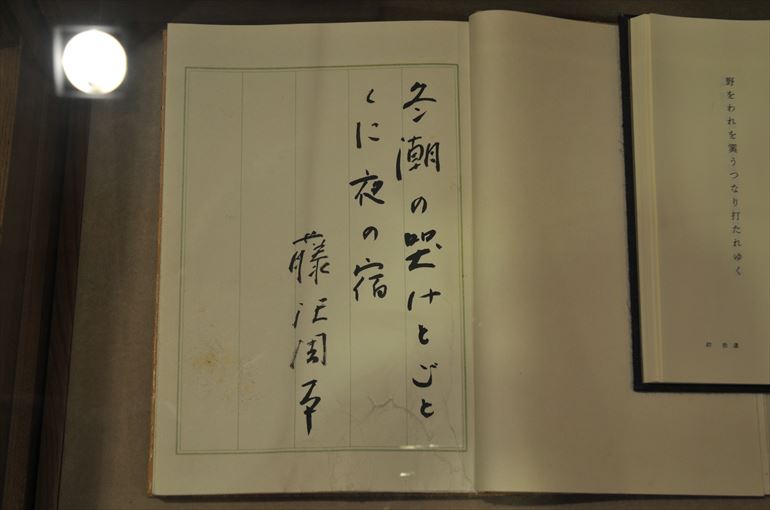 野をわれを霙うつなり打たれゆく
冬潮の哭けとごと
くに夜の宿
藤沢周平